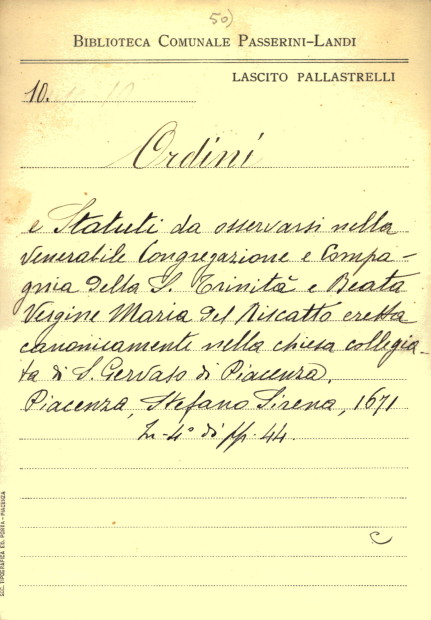 50)
BIBLIOTECA COMUNALE PASSERINI-LANDI
LASCITO PALLASTRELLI
10.
Ordini
e Statuti da osservarsi nella
Venerabile Congregazione e Compa-
gnia della S. Trinità e Beata
Vergine Maria del Riscatto eretta
canonicamente nella chiesa collegia-
ta di S. Gervaso di Piacenza.
Piacenza, Stefano Sirena, 1671
In-4° di pp. 44.
c
SOC. TIPOGRAFICA ED. PORTA - PIACENZA